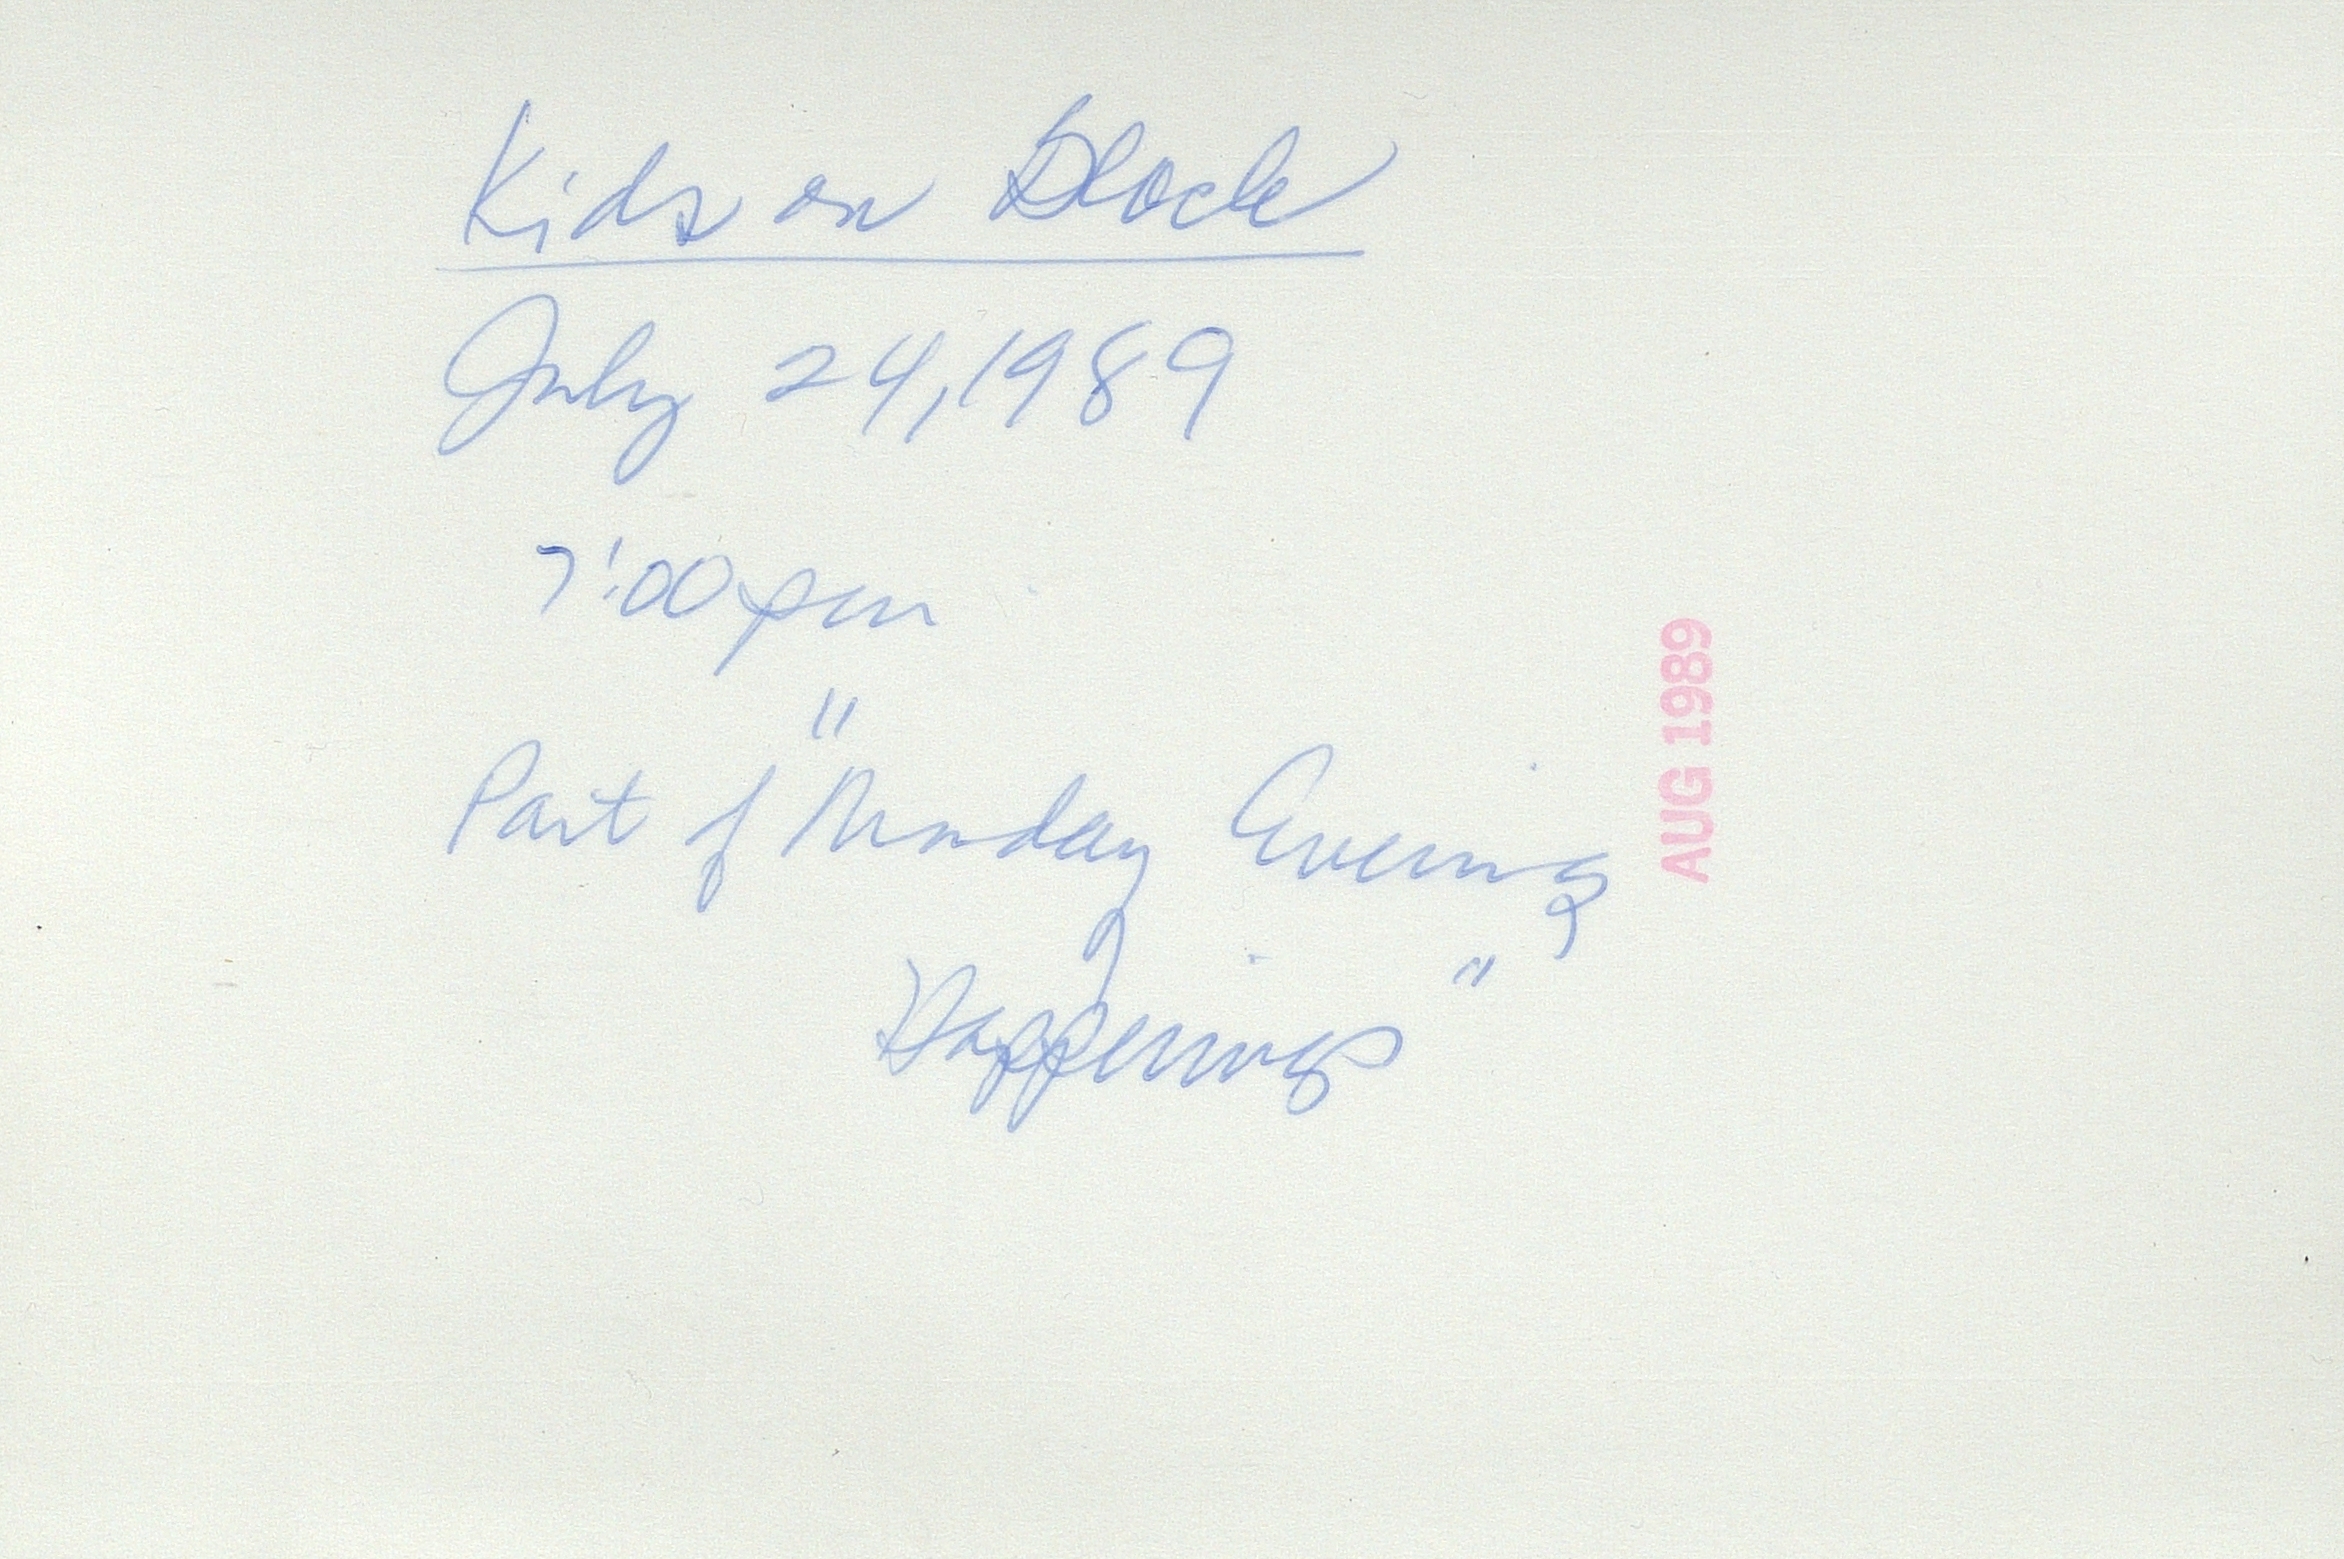 Kids on Block
July 24, 1989
7:00 pm
Part of "Monday Evening
Happenings"
AUG 1989